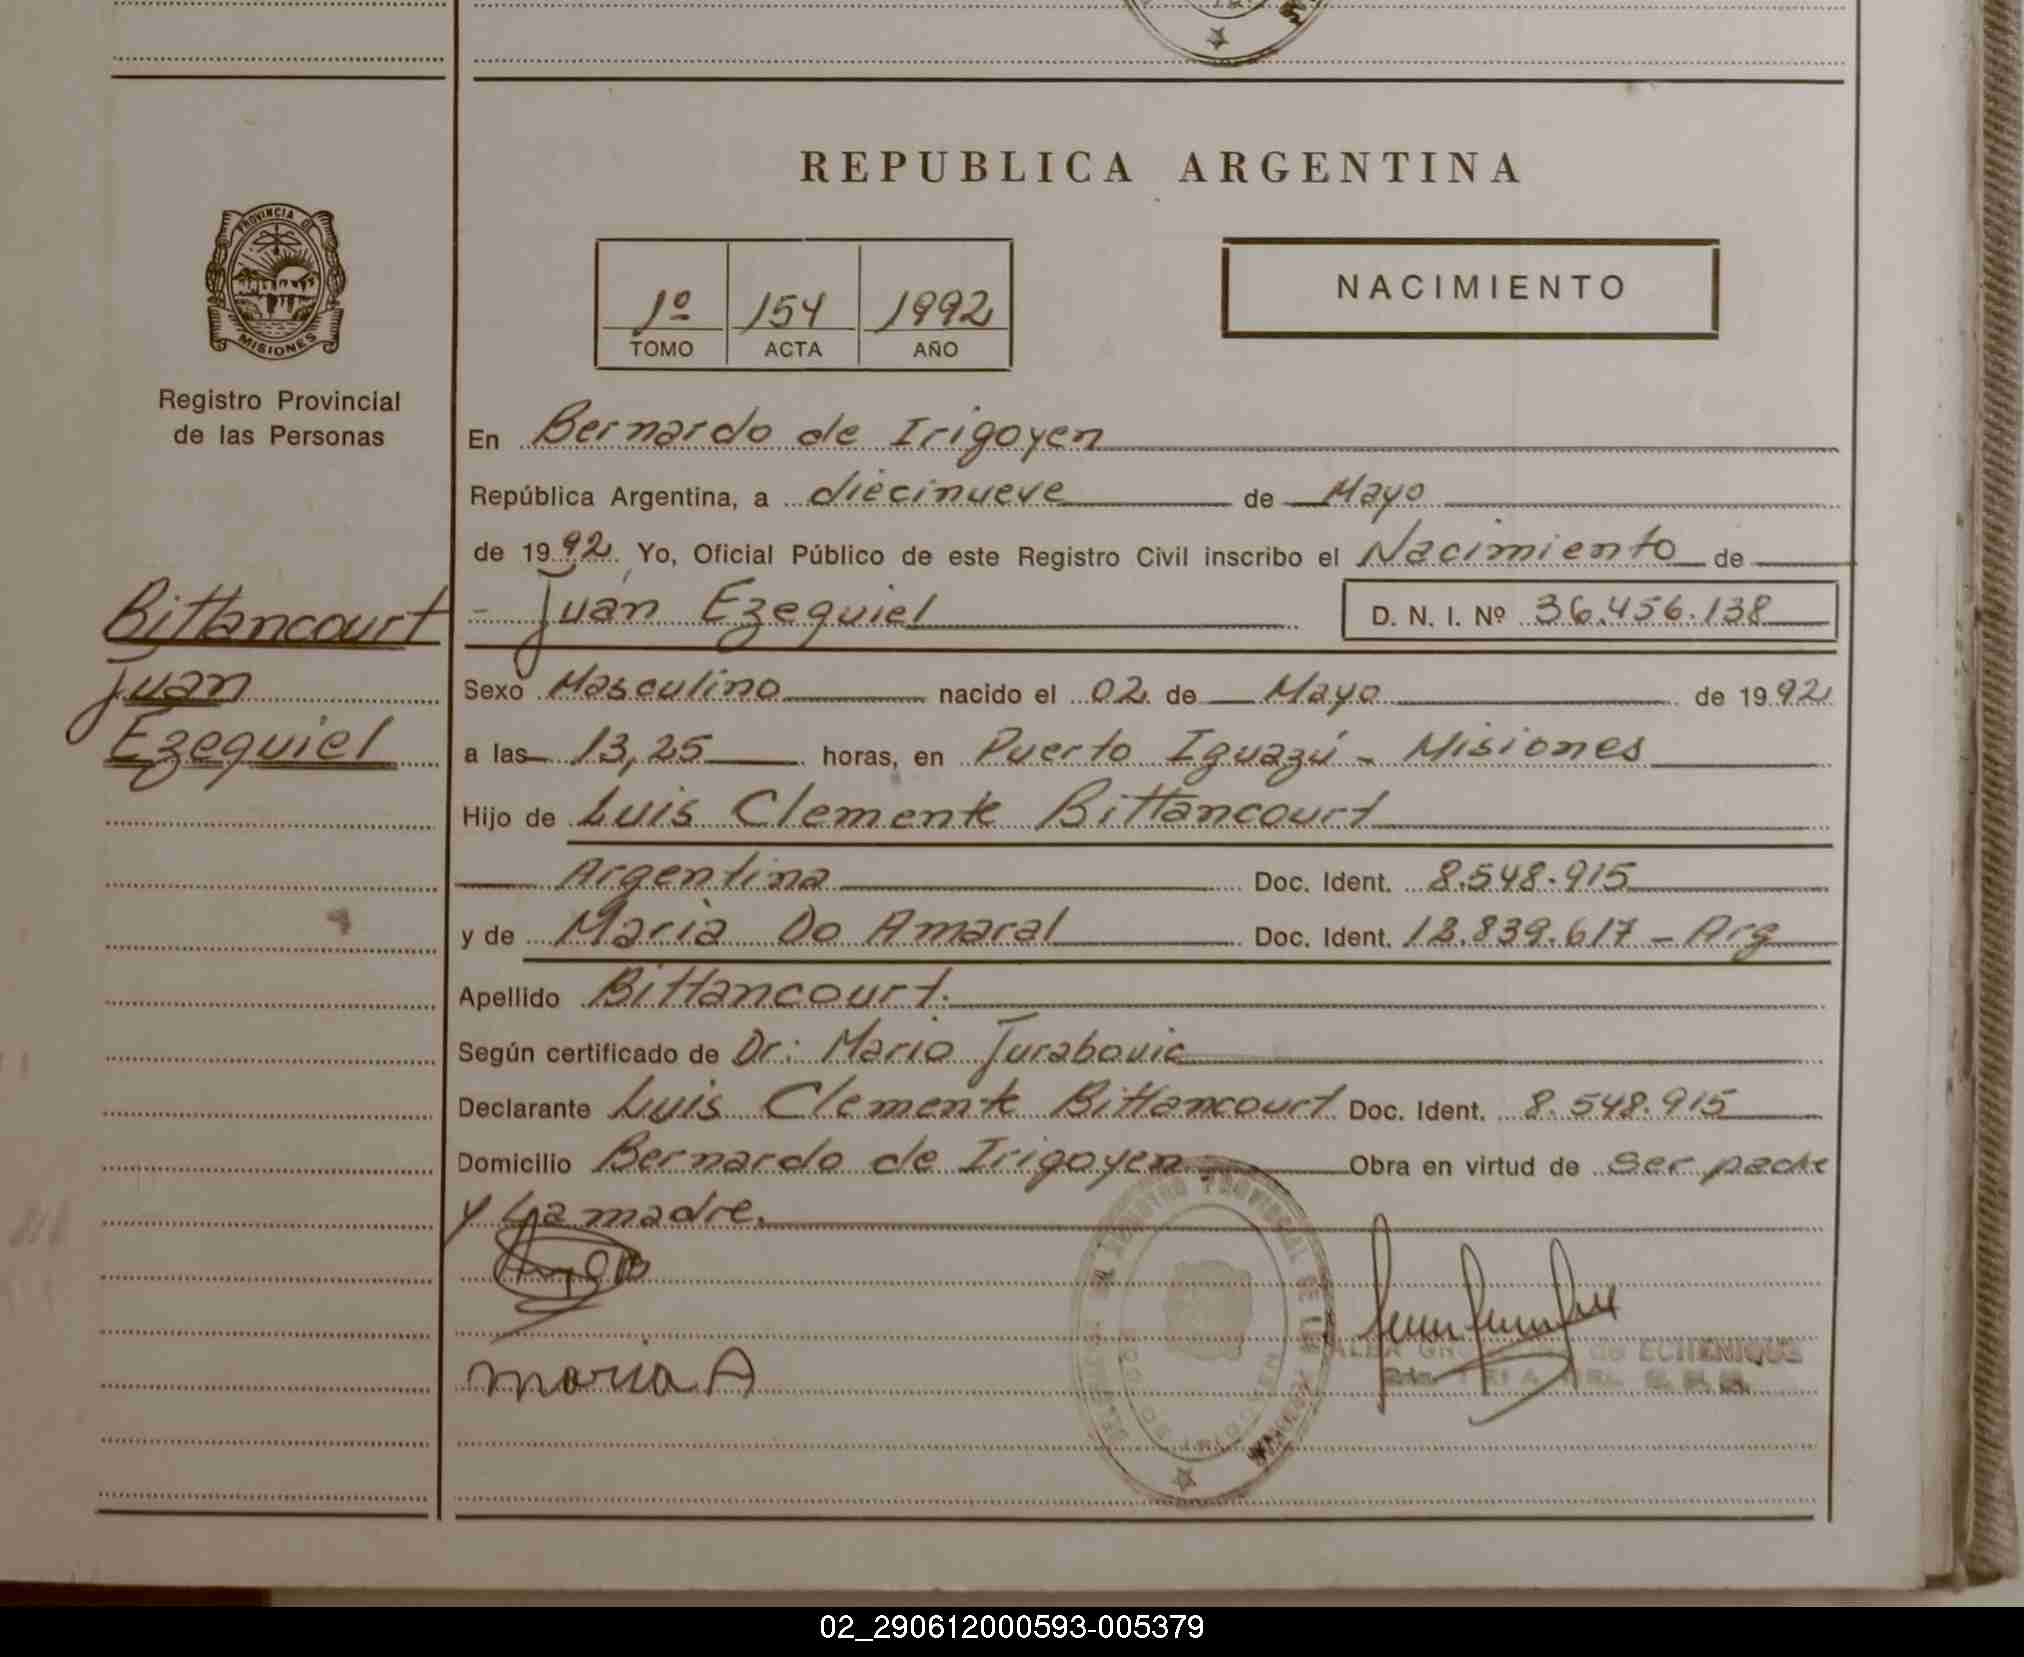 REPUBLICA ARGENTINA
PROVINCIA DE
MISIONES
Registro Provincial
de las Personas
1º 154 1992
TOMO ACTA AÑO
NACIMIENTO
Bittancourt
Juan
Ezequiel
En Bernardo de Irigoyen
República Argentina, a diecinueve de Mayo
de 1992. Yo, Oficial Público de este Registro Civil inscribo el Nacimiento de
- Juan Ezequiel D. N. I. Nº 36.456.138
Sexo Masculino nacido el 02 de Mayo de 1992
a las 13,25 horas, en Puerto Iguazú - Misiones
Hijo de Luis Clemente Bittancourt
Argentina Doc. Ident. 8.548.915
y de Maria Do Amaral Doc. Ident. 13.839.617 - Arg
Apellido Bittancourt.
Según certificado de Dr: Mario Jurabovic
Declarante Luis Clemente Bittancourt Doc. Ident. 8.548.915
Domicilio Bernardo de Irigoyen Obra en virtud de ser padre
y La madre.
maria A
de ECHENIQUE
02_290612000593-005379